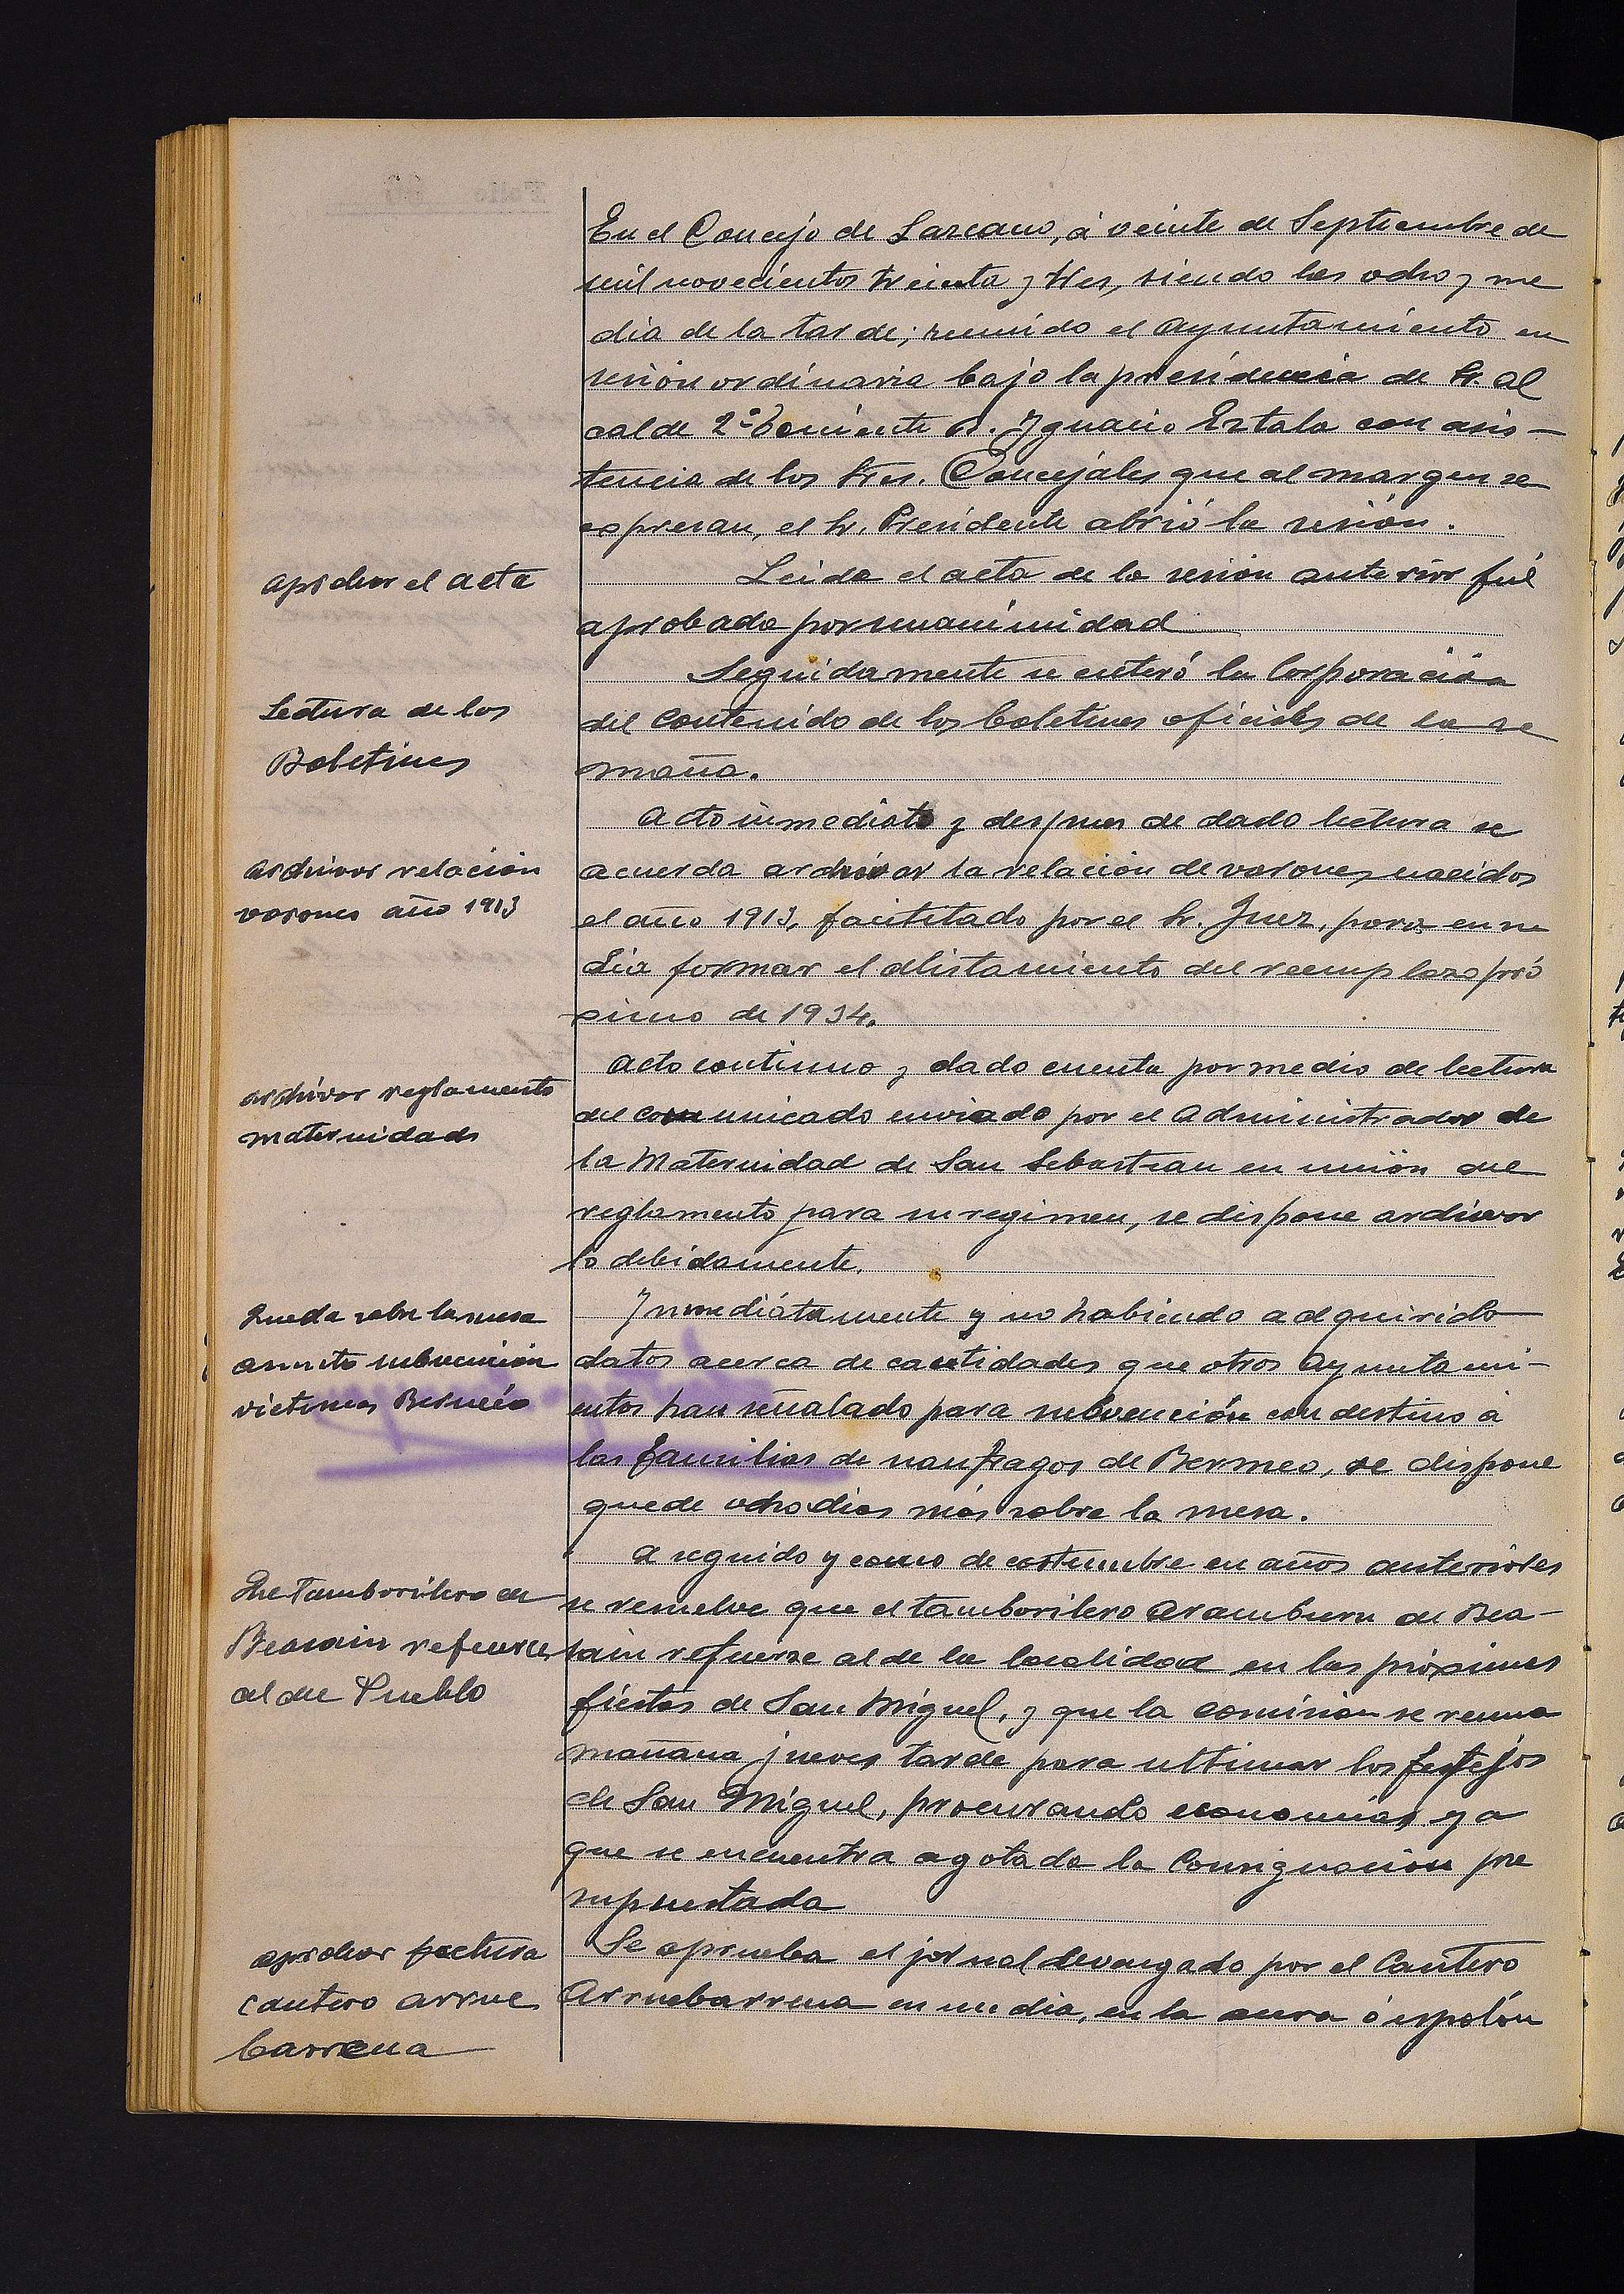 En el Concejo de Lazcano, á veinte de Septiembre de
mil novecientos treinta y tres, siendo las ocho y me
dia de la tarde; reunido el Ayuntamiento en
sesión ordinaria bajo la presidencia de Sr. Al
calde 2º Teniente D. Ignacio Estala con asis-
tencia de los Sres. Concejales que al margen se
expresan, el Sr. Presidente abrió la sesión.
Aprobar el acta
Leida el acta de la sesión anterior fué
aprobada por unanimidad
Lectura de los
Boletines
Seguidamente se enteró la Corporación
del contenido de los boletines oficiales de la se
mana.
Archivar relación
varones año 1913
Acto inmediato y despues de dado lectura se
acuerda archivar la relación de varones nacidos
el año 1913, facilitado por el Sr. Juez, para en su
dia formar el alistamiento del reemplazo pró
ximo de 1934.
Archivar reglamento
maternidad
Acto continuo y dado cuenta por medio de lectura
del comunicado enviado por el Administrador de
la Maternidad de San Sebastian en unión del
reglamento para su regimen, se dispone archivar
lo debidamente.
Queda sobre la mesa
asunto subvención
victimas Bermeo
Inmediátamente y no habiendo adquirido
datos acerca de cantidades que otros Ayuntami-
entos han señalado para subvención con destino á
las familias de naufragos de Bermeo, se dispone
quede ocho dias más sobre la mesa.
Que Tamborilero de
Beasain refuerce
al del Pueblo
A seguido y como de costumbre en años anteriores
se resuelve que el tamborilero Aramburu de Bea-
sain refuerze al de la localidad en las próximas
fiestas de San Miguel, y que la comision se reuna
mañana jueves tarde para ultimar los festejos
de San Miguel, procurando economias ya
que se encuentra agotada la Consignación pre
supuestada
Aprobar factura
cantero Arrue
barrena
Se aprueba el jornal devengado por el Cantero
Arruebarrena en un dia, en la ó espolón